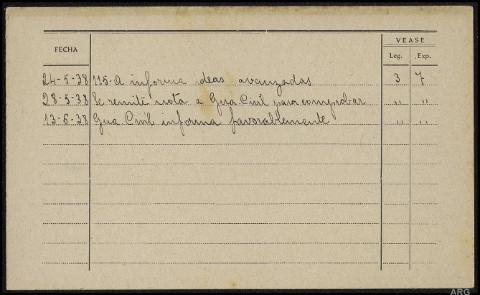 FECHA
VEASE
Leg. Exp.
24-5-38 115-A informa ideas avanzadas 3 7
28-5-38 Se remite nota a Gua Civil para comprobar " "
13-6-38 Gua Civil informa favorablemente " "
ARG